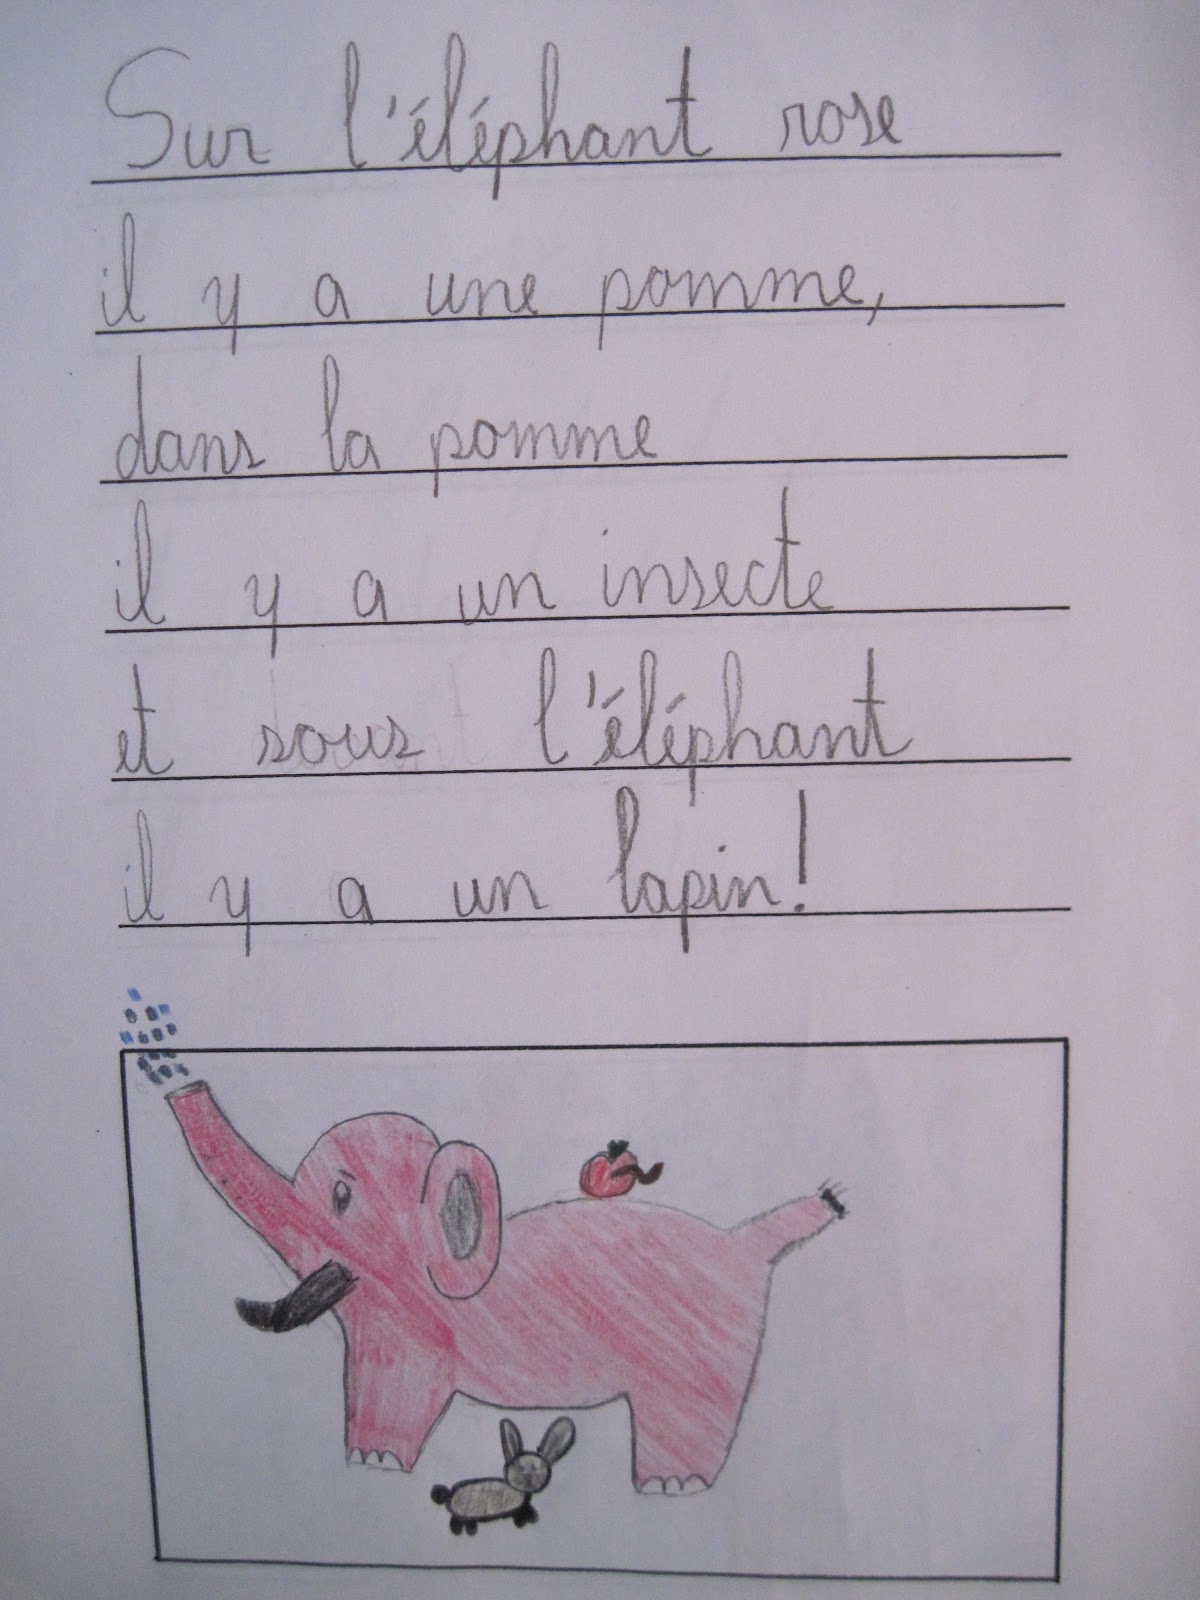 Sur l'éléphant rose
il y a une pomme,
dans la pomme
il y a un insecte
et sous l'éléphant
il y a un lapin!